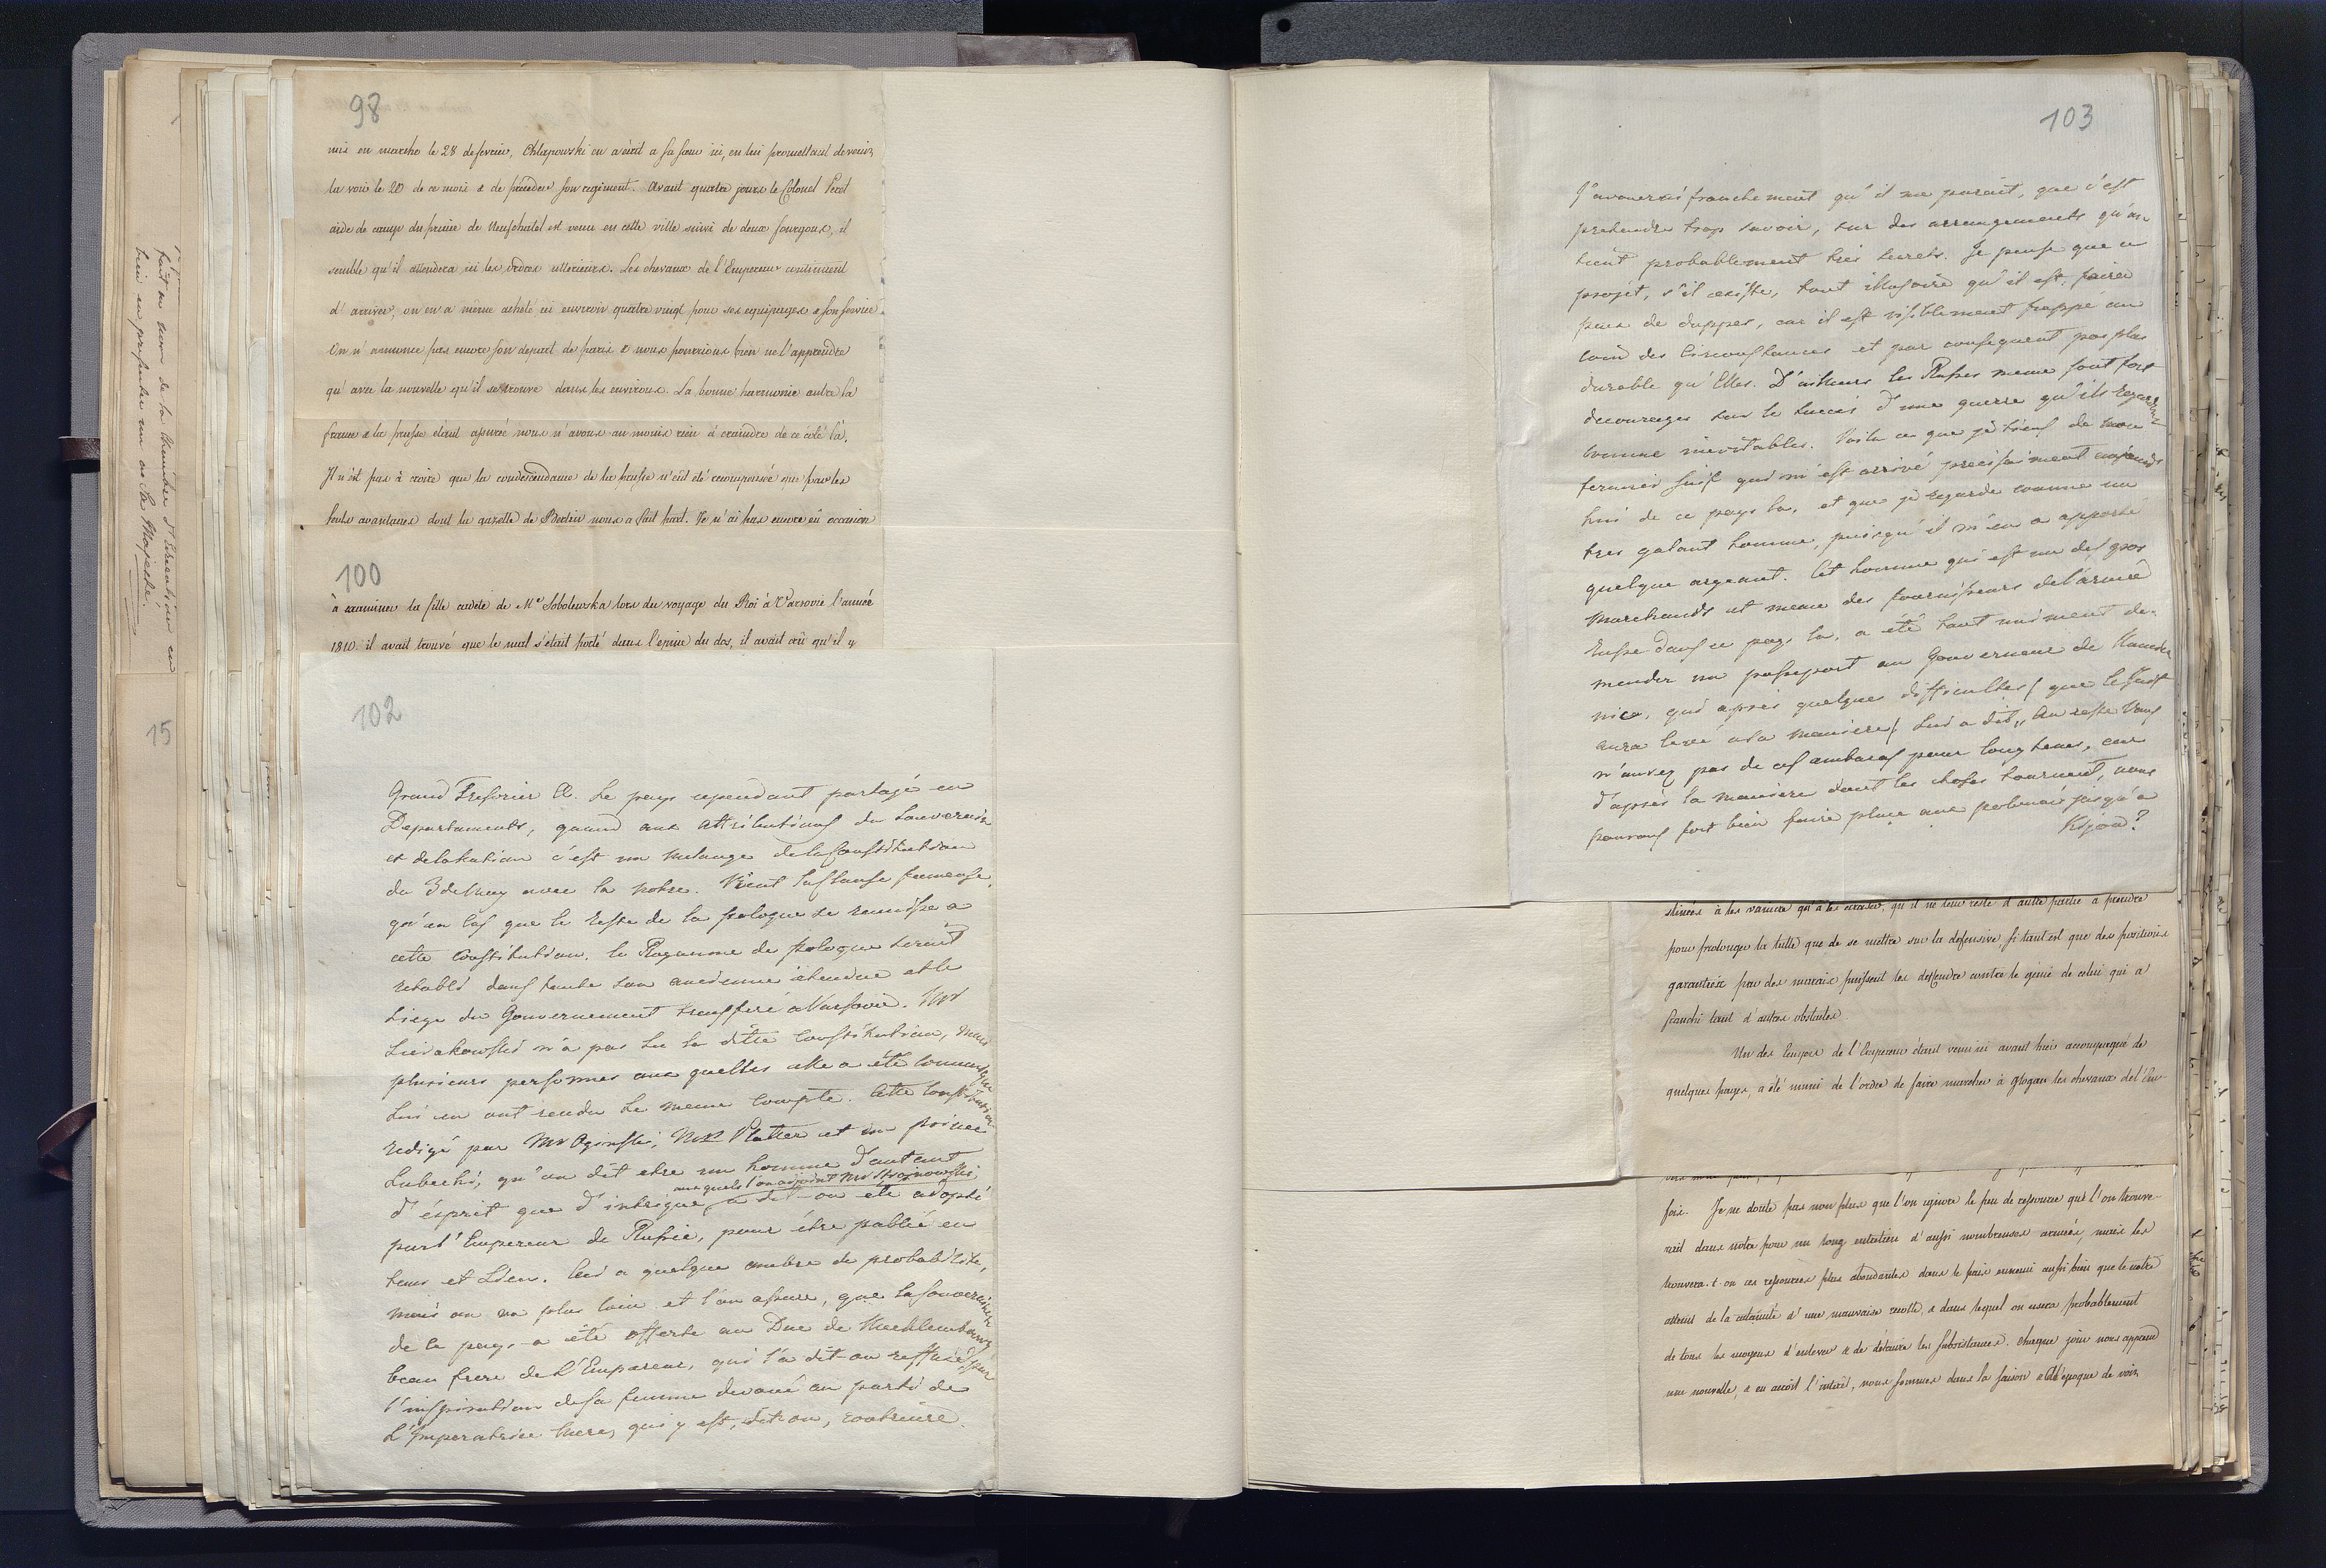 fait au nom de la Chambre d'Education en
bien en presenter un au Sa Majesté.
15
98
mis en marche le 28 de fevrier, Chlapowski en a écrit a sa sœur ici, en lui promettant de venir
la voir le 20 de ce mois & de précéder son regiment. Avant quatre jours le Colonel Perot
aide de camp du prince de Neufchatel est venu en cette ville suivi de deux fourgons, il
semble qu'il attendera ici les ordres ulterieurs. Les chevaux de l'Empereur continuent
d'arriver, on en a même acheté ici environ quatre vingt pour ses equipages & son service.
On n'annonce pas encore son depart de paris & nous pourrions bien ne l'apprendre
qu'avec la nouvelle qu'il se trouve dans les environs. La bonne harmonie entre la
france & la prusse étant assurée nous n'avons au moins rien à craindre de ce côté là.
Il n'est pas à croire que la condescendance de la prusse n'eût été recompensée que par les
seuls avantages dont la gazette de Berlin nous a fait part. Je n'ai pas encore eû occasion
100
à examiner la fille cadete de Me Sobolewska lors du voyage du Roi à Varsovie l'année
1810. il avait trouvé que le mal s'était porté dans l'epine du dos, il avait crû qu'il y
102
Grand Tresorier &c. Le pays cependant partagé en
Departaments, quand aux attributions du Souverain
et de la Nation c'est un melange de la Constitution
du 3 de May avec la notre. Vient la clause fameuse,
qu'en cas que le reste de la pologne se reunisse a
cette Constitution, le Royaume de pologne serait
retabli dans toute son ancienne étendue et le
Siege du Gouvernement transferé a Varsovie. Mr
Sierakowski n'a pas lu la ditte Constitution, mais
plusieurs personnes aux quelles elle a été connue, qui
lui en ont rendu le meme compte. Cette Constitution
redigé par Mr Oginski, Mr Platter et un prince
Lubecki, qu'on dit etre un homme d'autant
d'ésprit que d'intrigue, aux quels l'on adjoint Mr Strojnowski, a dit-on été adopté
par l'Empereur de Russie, pour étre publié en
tems et Lieu. Ceci a quelque ombre de probabilité,
mais on va plus loin et l'on assure, que la souveraineté
de ce pays a été offerte au Duc de Mecklembourg
beau frere de l'Empereur, qui l'a dit-on reffusé, par
l'inspiration de sa femme devoué au parti de
L'Imperatrice Mere, qui y est, dit on, contraire.
103
J'avouerai franchement qu'il me parait, que c'est
pretendre trop savoir, sur des arrangements qu'on
tient probablement tres secrets. Je pense que ce
projet, s'il existe, tout illusoire qu'il est, faira
peu de duppes, car il est visiblement frappé au
coin des Circonstances et par consequent pas plus
durable qu'Elles. D'ailleurs les Russes meme sont fort
decouragés sur le succés d'une guerre qu'ils regardent
comme inevitables. Voila ce que je tiens de mon
fermier Juif qui m'est arrivé precisement aujourd'
hui de ce pays la, et que je regarde comme un
tres galant homme, puisqu'il m'en a apporté
quelque argeant. Cet homme qui est un des gros
Marchands et meme des fournisseurs de l'armée
Russe dans ce pays la, a été tout uniment de-
mander un passeport au Gouverneur de Kamie
niec, qui apres quelques difficultes (que le Juif
aura levé a sa maniere) lui a dit, "Au reste Vous
n'aurez pas de ces embaras pour longtems, car
d'après la maniere dont les choses tournent, nous
pourrons fort bien faire place aux polonais jusqu'a
Kijow?
stinés à les vaincre qu'à les écraser, qu'il ne leur reste d'autre partie a prendre
pour prolonger la lutte que de se mettre sur la defensive, si tant est que des positions
garanties par des marais puissent les deffendre contre le génie de celui qui a
franchi tant d'autres obstacles.
Un des Ecuyers de l'Empereur étant venu ici avant hier accompagné de
quelques pages, a été muni de l'ordre de faire marcher à Glogau les chevaux de l'Em-
fois. Je ne doute pas non plus que l'on ignore le peu de ressource que l'on trouve-
rait dans notre pour un long entretien d'aussi nombreuses armées, mais les
trouvera-t-on ces ressources plus abondantes dans le païs ennemi aussi bien que le notre
atteint de la calamité d'une mauvaise recolte, & dans lequel on usera probablement
de tous les moyens d'enlever & de détruire les subsistances. Chaque jour nous apprend
une nouvelle, & en accroit l'interêt, nous sommes dans la saison & à l'époque de voir